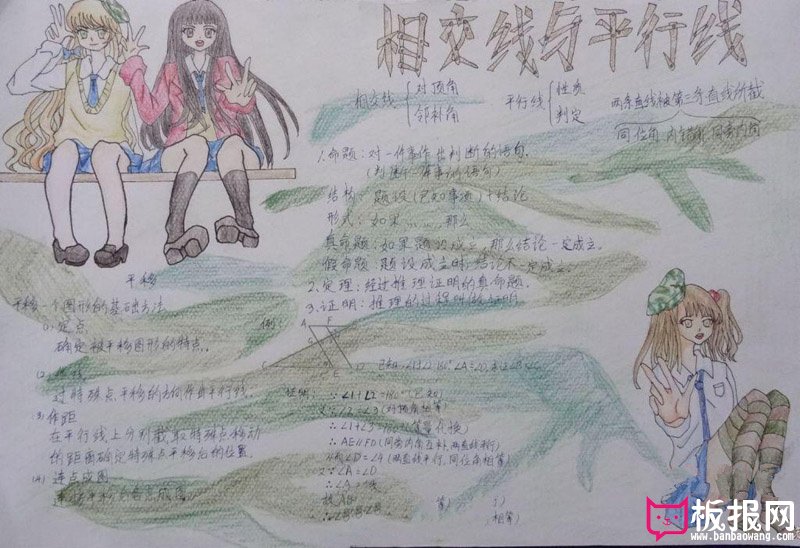 相交线与平行线
相交线 对顶角 邻补角
平行线 性质 判定
两条直线被第三条直线所截
同位角 内错角 同旁内角
1.命题:对一件事作出判断的语句.
(判断一件事的语句)
结构:题设(已知事项)+结论
形式:如果……那么
真命题:如果题设成立,那么结论一定成立。
假命题:题设成立时,结论不一定成立。
2.定理:经过推理证明的真命题.
3.证明:推理的过程叫做证明
平移
平移一个图形的基本方法
(1)定点
确定被平移图形的特点.
(2)
过特殊点平移的方向作出平行线.
(3)
在平行线上分别截取特殊点移动
的距离确定特殊点平移后的位置.
(4) 连点成图
例
A F
证明: ∵∠1+∠2=180°(已知)
又∵∠2=∠3(对顶角相等)
∴∠1+∠3=180°(等量代换)
∴AE∥FD(同旁内角互补,两直线平行)
(两直线平行,同位角相等)
又∵∠A=∠D
板报网
www.banbaowang.com